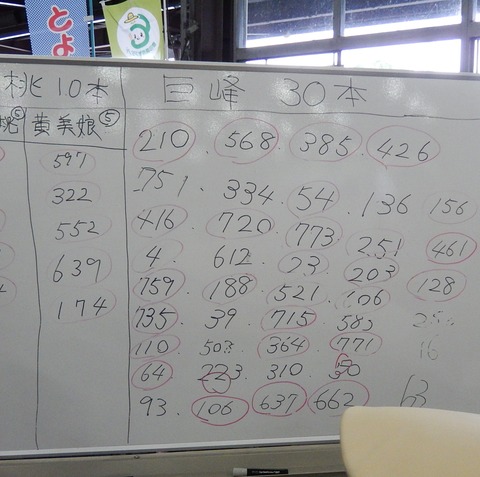 とよ
桃10本
巨峰 30本
黄美娘⑤
210 568 385 426
751 334 54 136 156
416 720 773 251 461
4 612 23 203
759 188 521 106 128
735 39 715
110 364 771 16
64 310
93 106 637 662
597
322
552
639
174